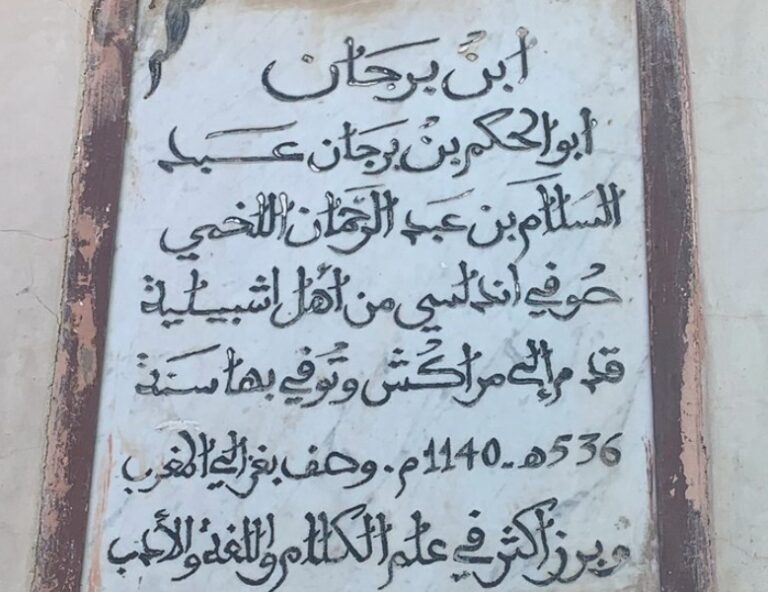 ابن برجان
ابو الحكم بن برجان عبد
السلام بن عبد الرحمان اللخمي
صُوفي اندلسي من أهل اشبيلية
قدم إلى مراكُش وتُوفي بها سنة
536هـ - 1140م. وصف بغزالي المغرب
وبرز أكثر في علم الكلام واللغة والأدب